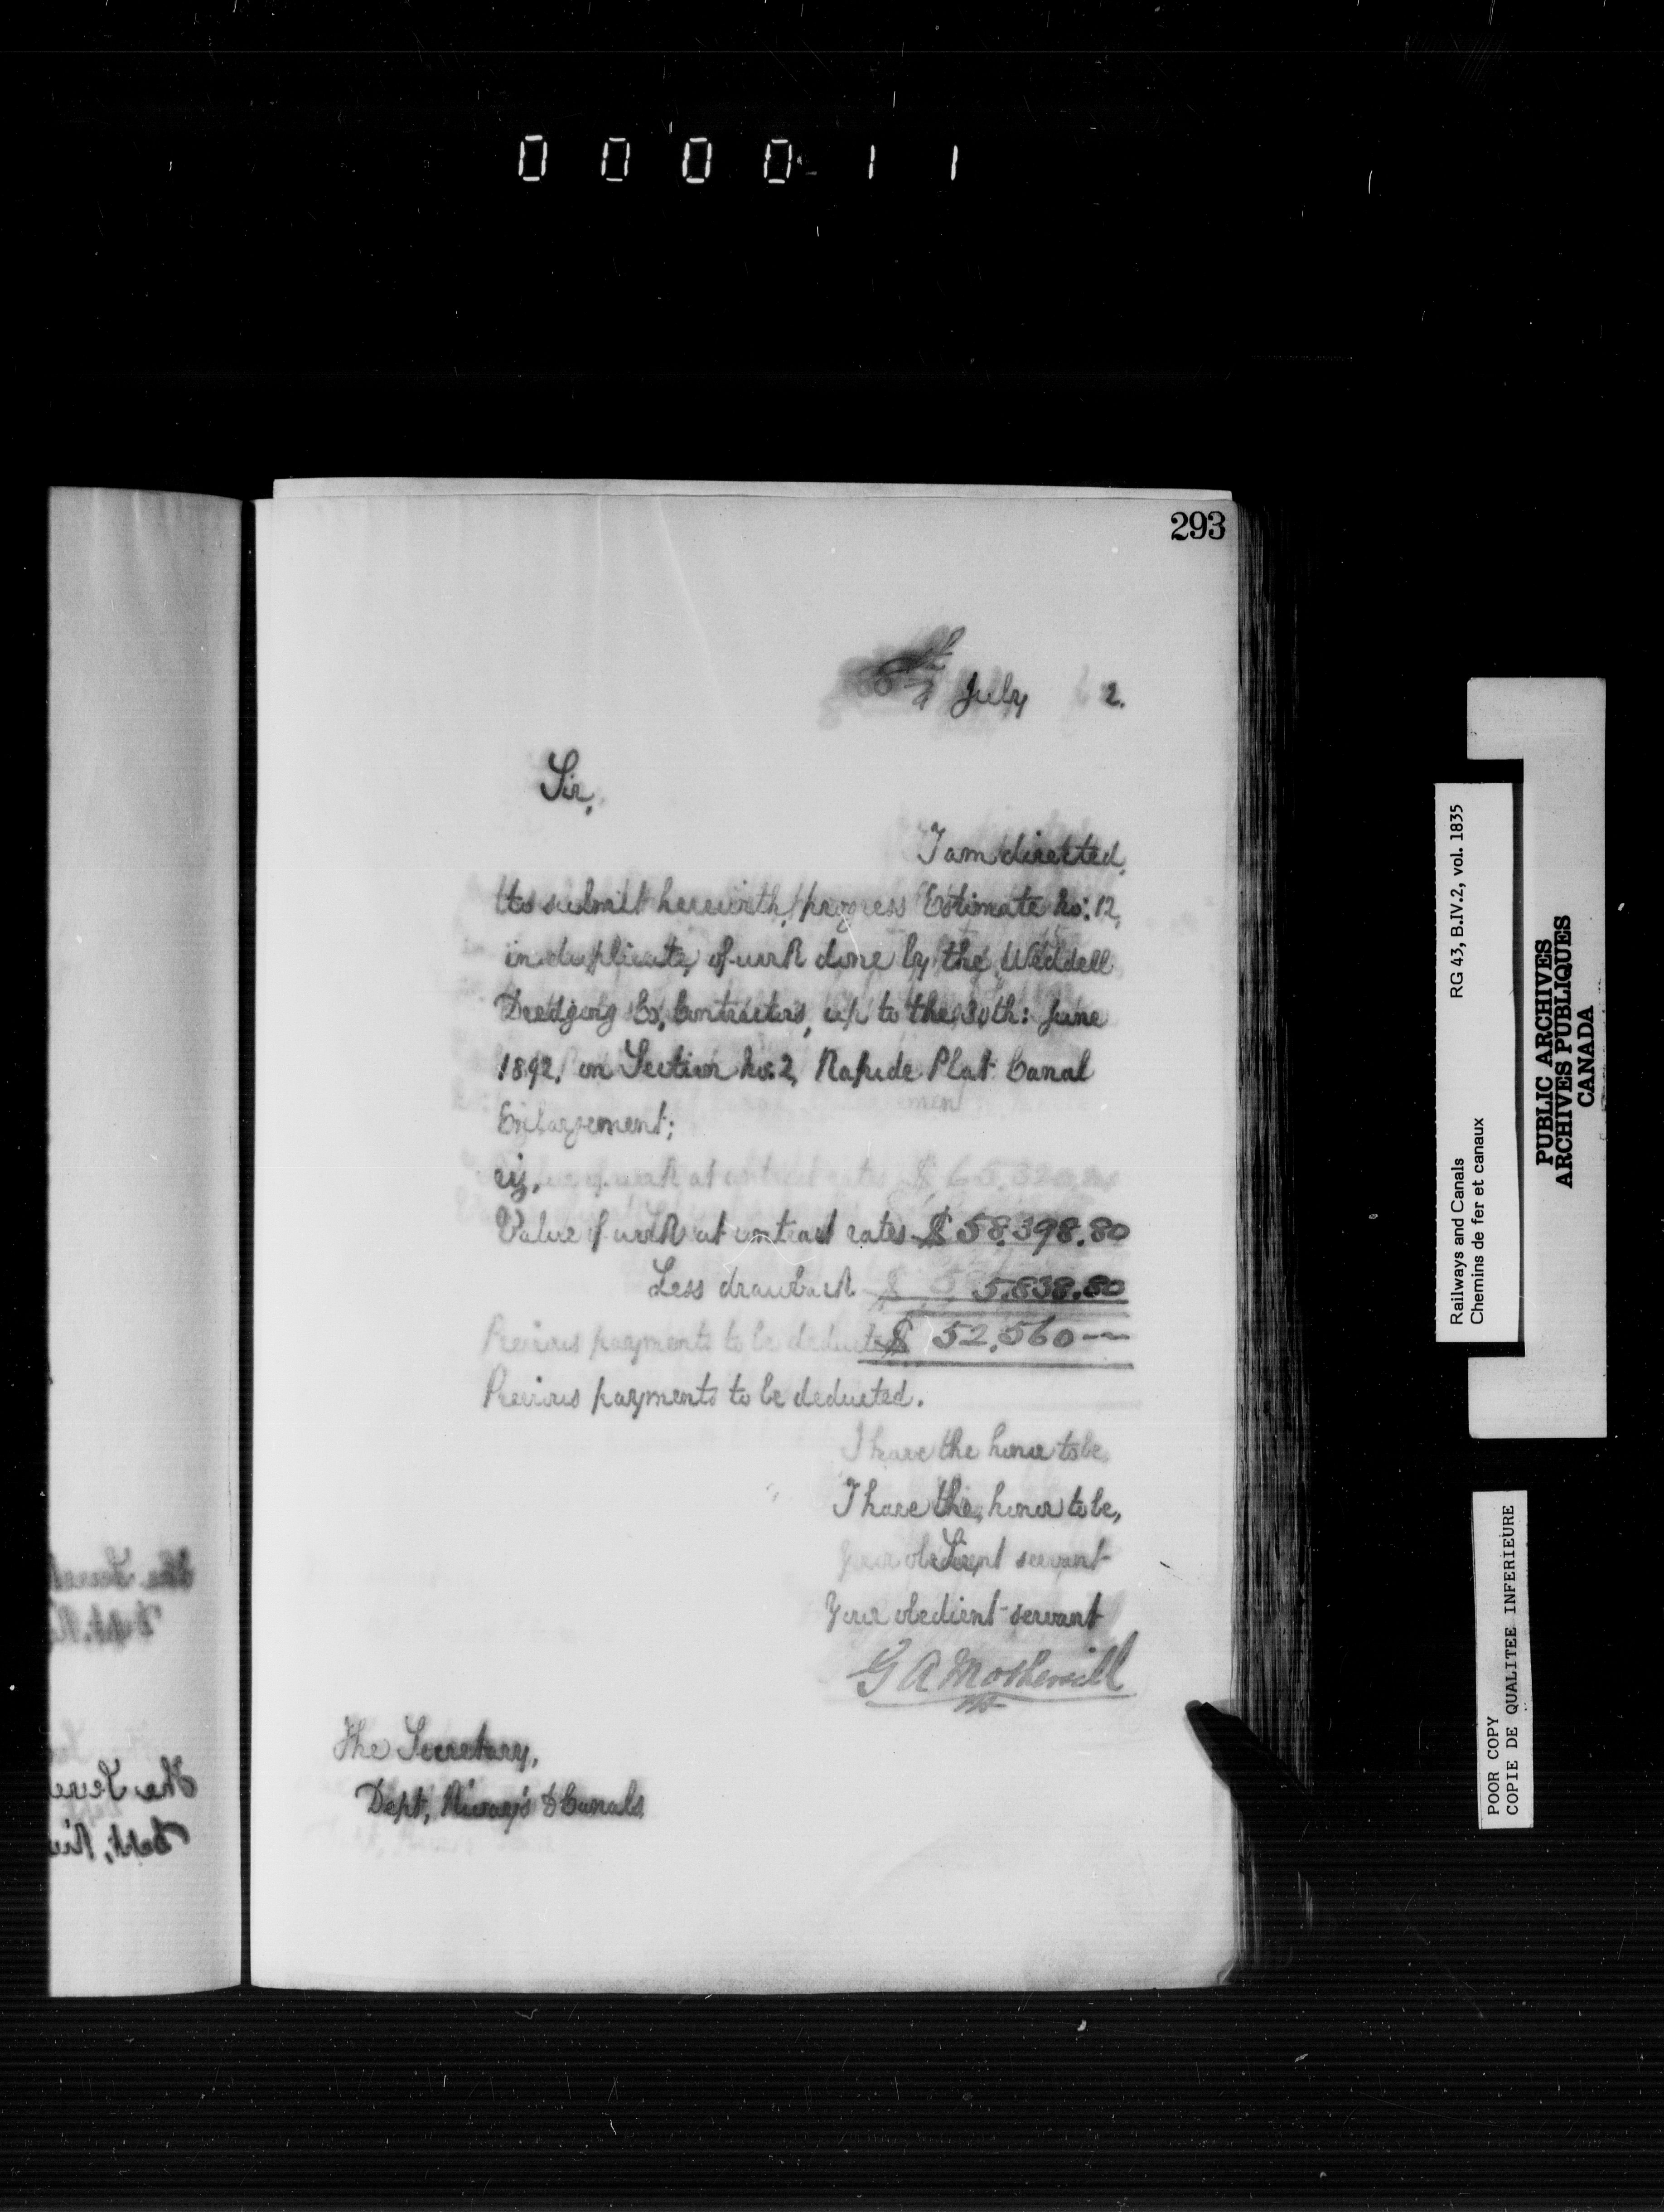 0 0 0 0 1 1
293
July 2.
Sir,
I am directed,
to submit herewith, progress Estimate No: 12,
in duplicate, of work done by the Weddell
Dredging Co, Contractors, up to the 30th: June
1892, on Section No: 2, Rapide Plat Canal
Enlargement;
viz,
Value of work at contract rates $ 58,398.80
Less drawback $ 5,838.80
$ 52,560 —
Previous payments to be deducted.
I have the honor to be,
Sir,
Your obedient servant
G A Mothersill
The Secretary,
Dept, Rlways & Canals
Railways and Canals RG 43, B.IV.2, vol. 1835
Chemins de fer et canaux
PUBLIC ARCHIVES
ARCHIVES PUBLIQUES
CANADA
POOR COPY
COPIE DE QUALITEE INFERIEURE